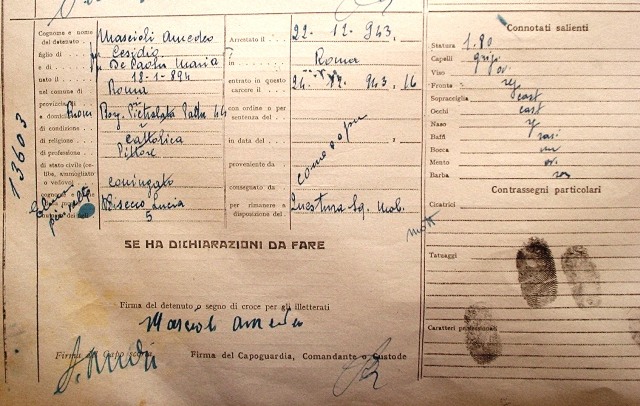 Cognome e nome
del detenuto Mascioli Amedeo
figlio di Cesidio
e di fu De Paolis Maria ?
nato il 18-1-894
nel comune di Roma
provincia
e domicilio Roma Borg. Pietralata
di condizione
di religione cattolica
di professione Pittore
di stato civile (ce-
libe, ammogliato
o vedovo) coniugato
Lucia
5
13603
Arrestato il 22-12 943.
in Roma
entrato in questo
carcere il 24 943 16
con ordine o per
sentenza del
in data del
come sopra
proveniente da
consegnato da
per rimanere a
disposizione del Questura Sq. Mob.
Connotati salienti
Statura 1.80
Capelli grigi
Viso ov.
Fronte rg
Sopracciglia cast
Occhi cast
Naso rg
Baffi rasi
Bocca
Mento ov.
Barba
Contrassegni particolari
Cicatrici
Tatuaggi
Caratteri professionali
SE HA DICHIARAZIONI DA FARE
Firma del detenuto o segno di croce per gli illetterati
Mascioli Amedeo
Firma del Capo scorta
Firma del Capoguardia, Comandante o Custode